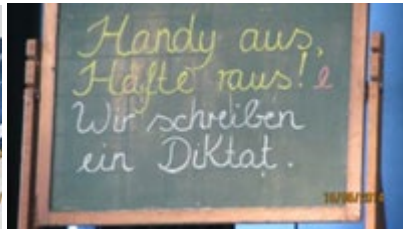 Handy aus,
Häfte raus! e
Wir schreiben
ein Diktat.